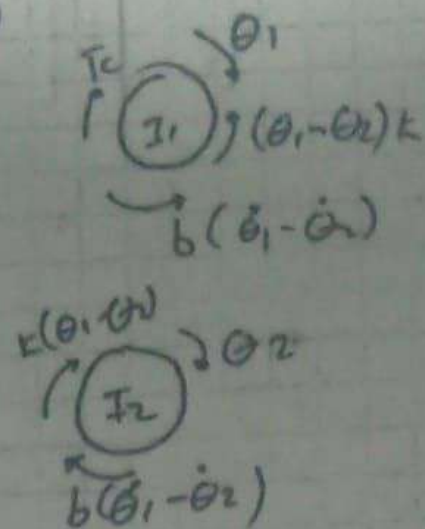 θ₁
Tc
I₁
(θ₁-θ₂)k
b(θ̇₁-θ̇₂)
k(θ₁-θ₂)
θ₂
I₂
b(θ̇₁-θ̇₂)